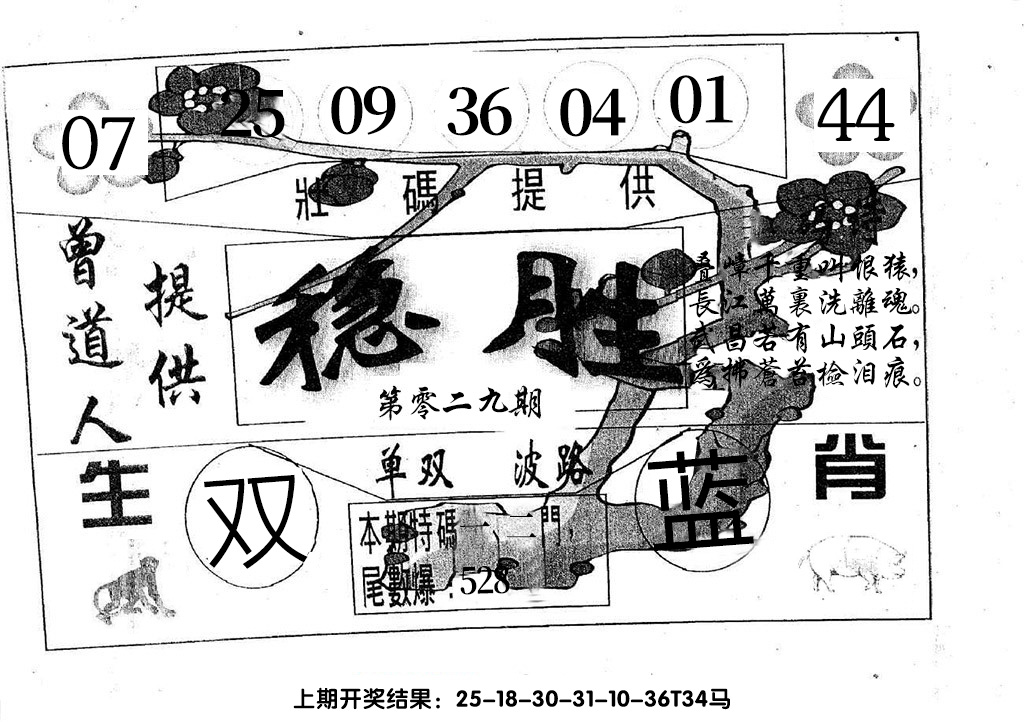 07 25 09 36 04 01 44
壯碼提供
曾道人
提供
稳胜
第零二九期
特
叠嶂千重叫恨猿，
長江萬裏洗離魂。
武昌若有山頭石，
爲拂蒼苔檢泪痕。
单双 波路
生肖
双
蓝
本期特碼一、二門，
尾數爆：528
上期开奖结果：25-18-30-31-10-36T34马